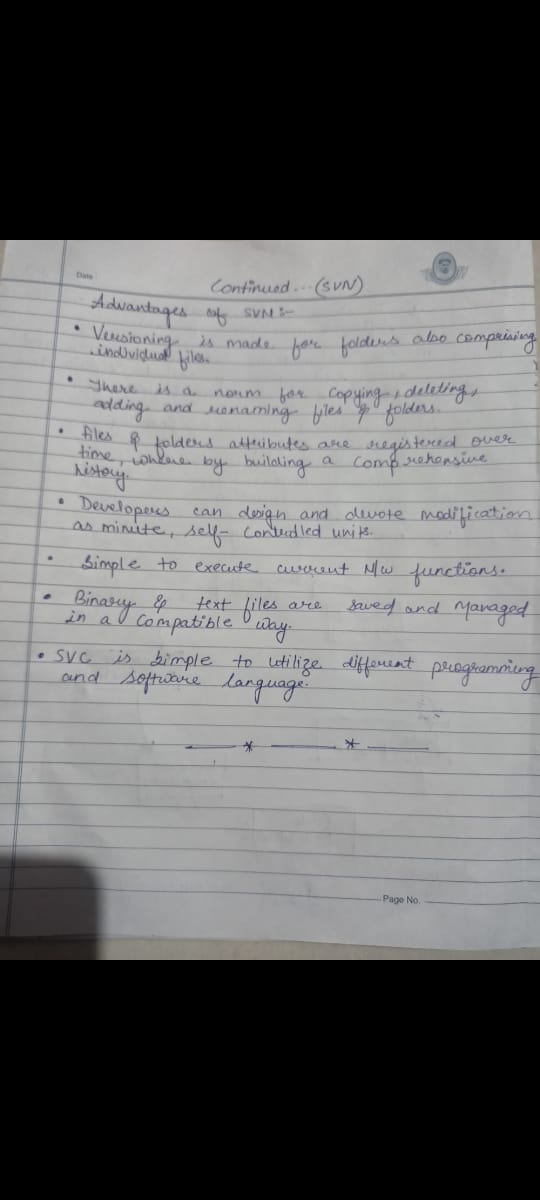 Date
Continued... (SVN)
Advantages of SVN :-
• Versioning is made for folders also comprising
individual files.
• There is a norm for copying, deleting,
adding and renaming files & folders.
• Files & folders attributes are registered over
time, where by building a comprehensive
history.
• Developers can design and devote modification
as minute, self- controlled units.
• Simple to execute current N/w functions.
• Binary & text files are saved and Managed
in a compatible way.
• SVC is simple to utilize different programming
and software language.
Page No.